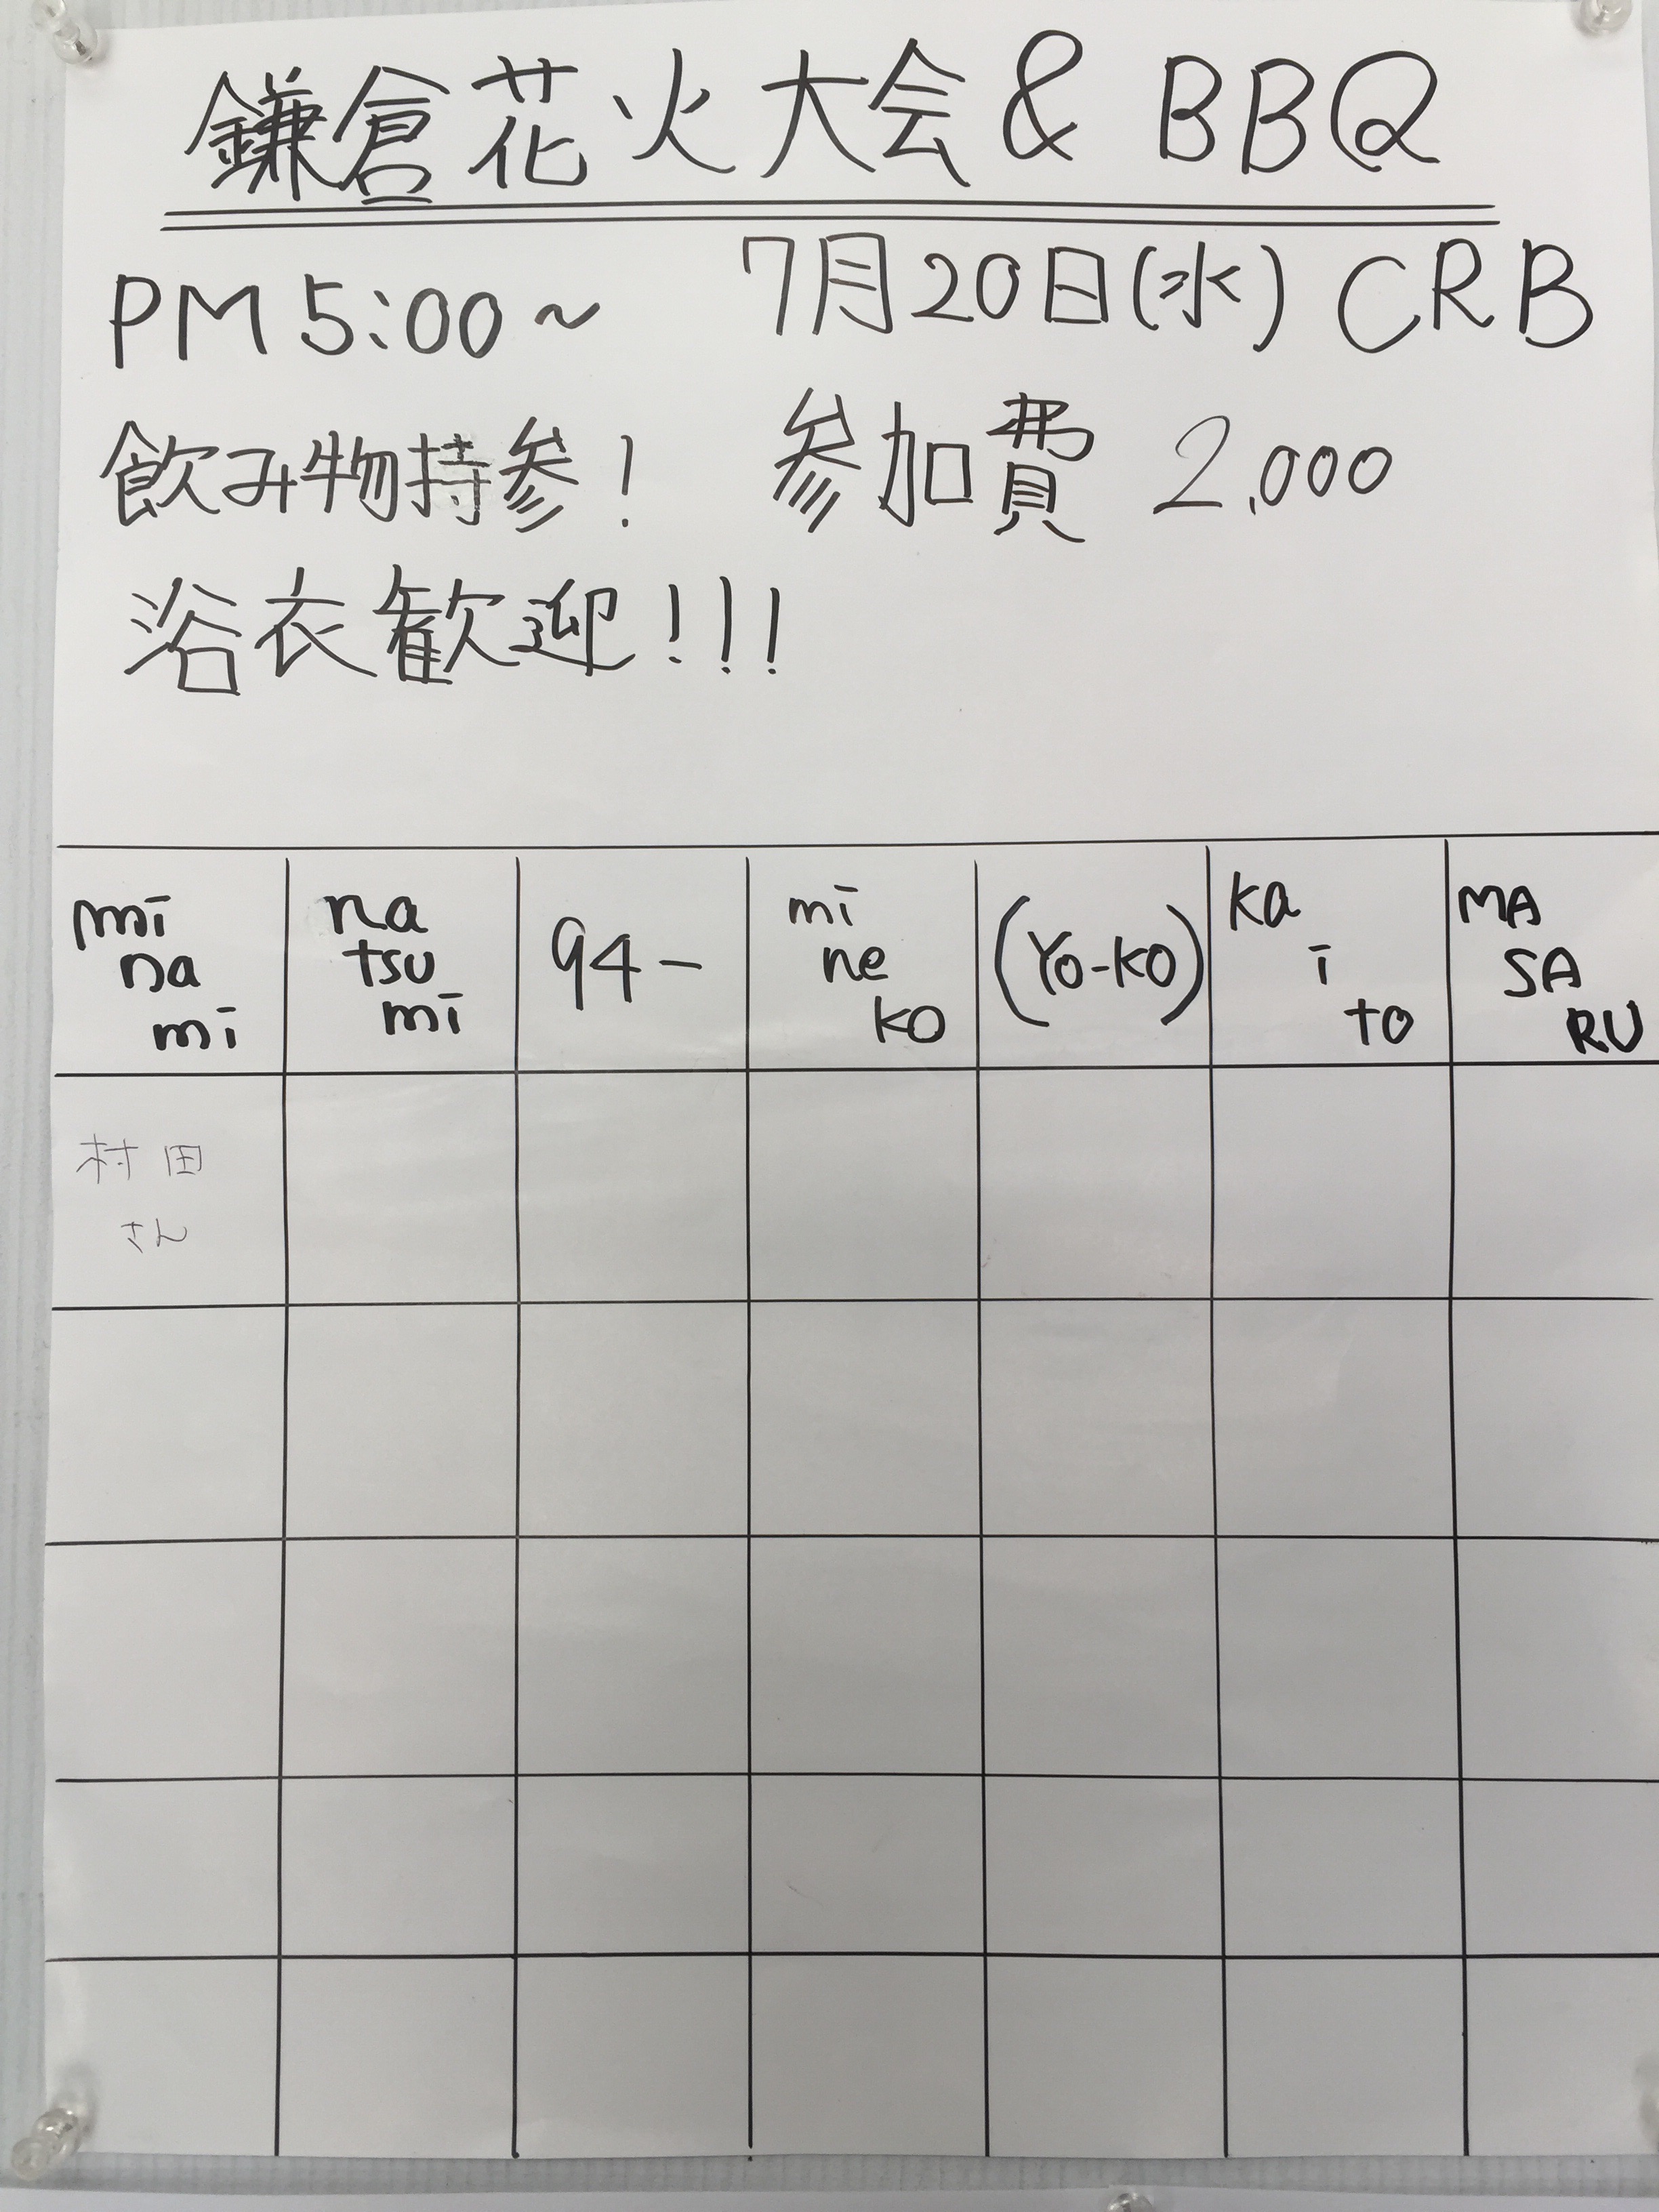 鎌倉花火大会& BBQ
PM 5:00～ 7月20日(水) CRB
飲み物持参! 参加費 2,000
浴衣歓迎!!!
mi
na
mi
na
tsu
mi
94-
mi
ne
ko
(Yo-Ko)
ka
i
to
MA
SA
RU
村田
さん